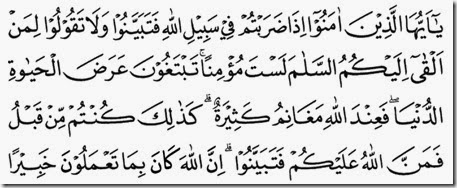 يٰٓاَيُّهَا الَّذِيْنَ اٰمَنُوْٓا اِذَا ضَرَبْتُمْ فِيْ سَبِيْلِ اللّٰهِ فَتَبَيَّنُوْا وَلَا تَقُوْلُوْا لِمَنْ
اَلْقٰٓى اِلَيْكُمُ السَّلٰمَ لَسْتَ مُؤْمِنًاۚ تَبْتَغُوْنَ عَرَضَ الْحَيٰوةِ
الدُّنْيَاۖ فَعِنْدَ اللّٰهِ مَغَانِمُ كَثِيْرَةٌۗ كَذٰلِكَ كُنْتُمْ مِّنْ قَبْلُ
فَمَنَّ اللّٰهُ عَلَيْكُمْ فَتَبَيَّنُوْاۗ اِنَّ اللّٰهَ كَانَ بِمَا تَعْمَلُوْنَ خَبِيْرًا